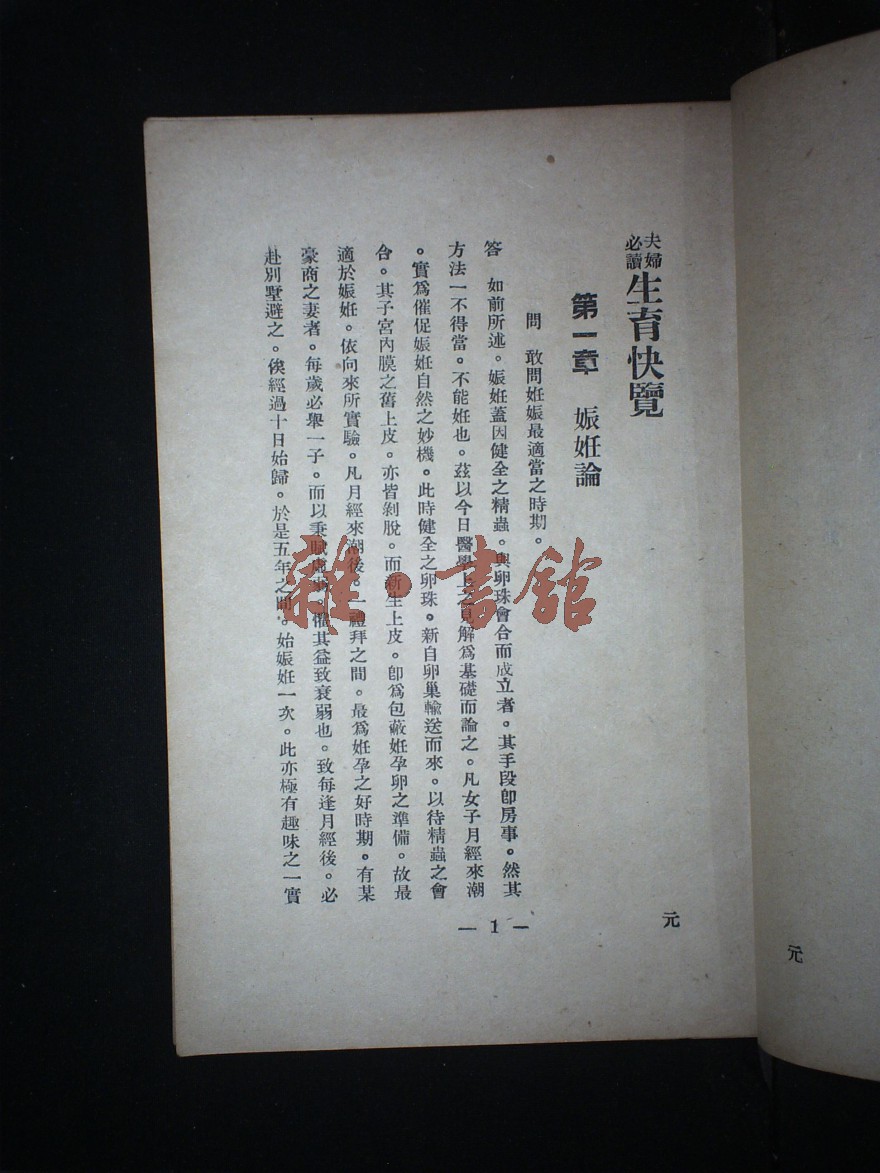 夫婦必讀生育快覽
第一章 娠妊論
問 敢問妊娠最適當之時期。
答 如前所述。娠妊蓋因健全之精蟲。與卵珠會合而成立者。其手段卽房事。然其
方法一不得當。不能妊也。茲以今日醫學上之見解爲基礎而論之。凡女子月經來潮
。實爲催促娠妊自然之妙機。此時健全之卵珠。新自卵巢輸送而來。以待精蟲之會
合。其子宮內膜之舊上皮。亦皆剝脫。而新生上皮。卽爲包蔽妊孕卵之準備。故最
適於娠妊。依向來所實驗。凡月經來潮後。一禮拜之間。最爲妊孕之好時期。有某
豪商之妻者。每歲必舉一子。而以秉賦虛弱。懼其益致衰弱也。致每逢月經後。必
赴別墅避之。俟經過十日始歸。於是五年之間。始娠妊一次。此亦極有趣味之一實
— 1 —
元
元
雜·書館